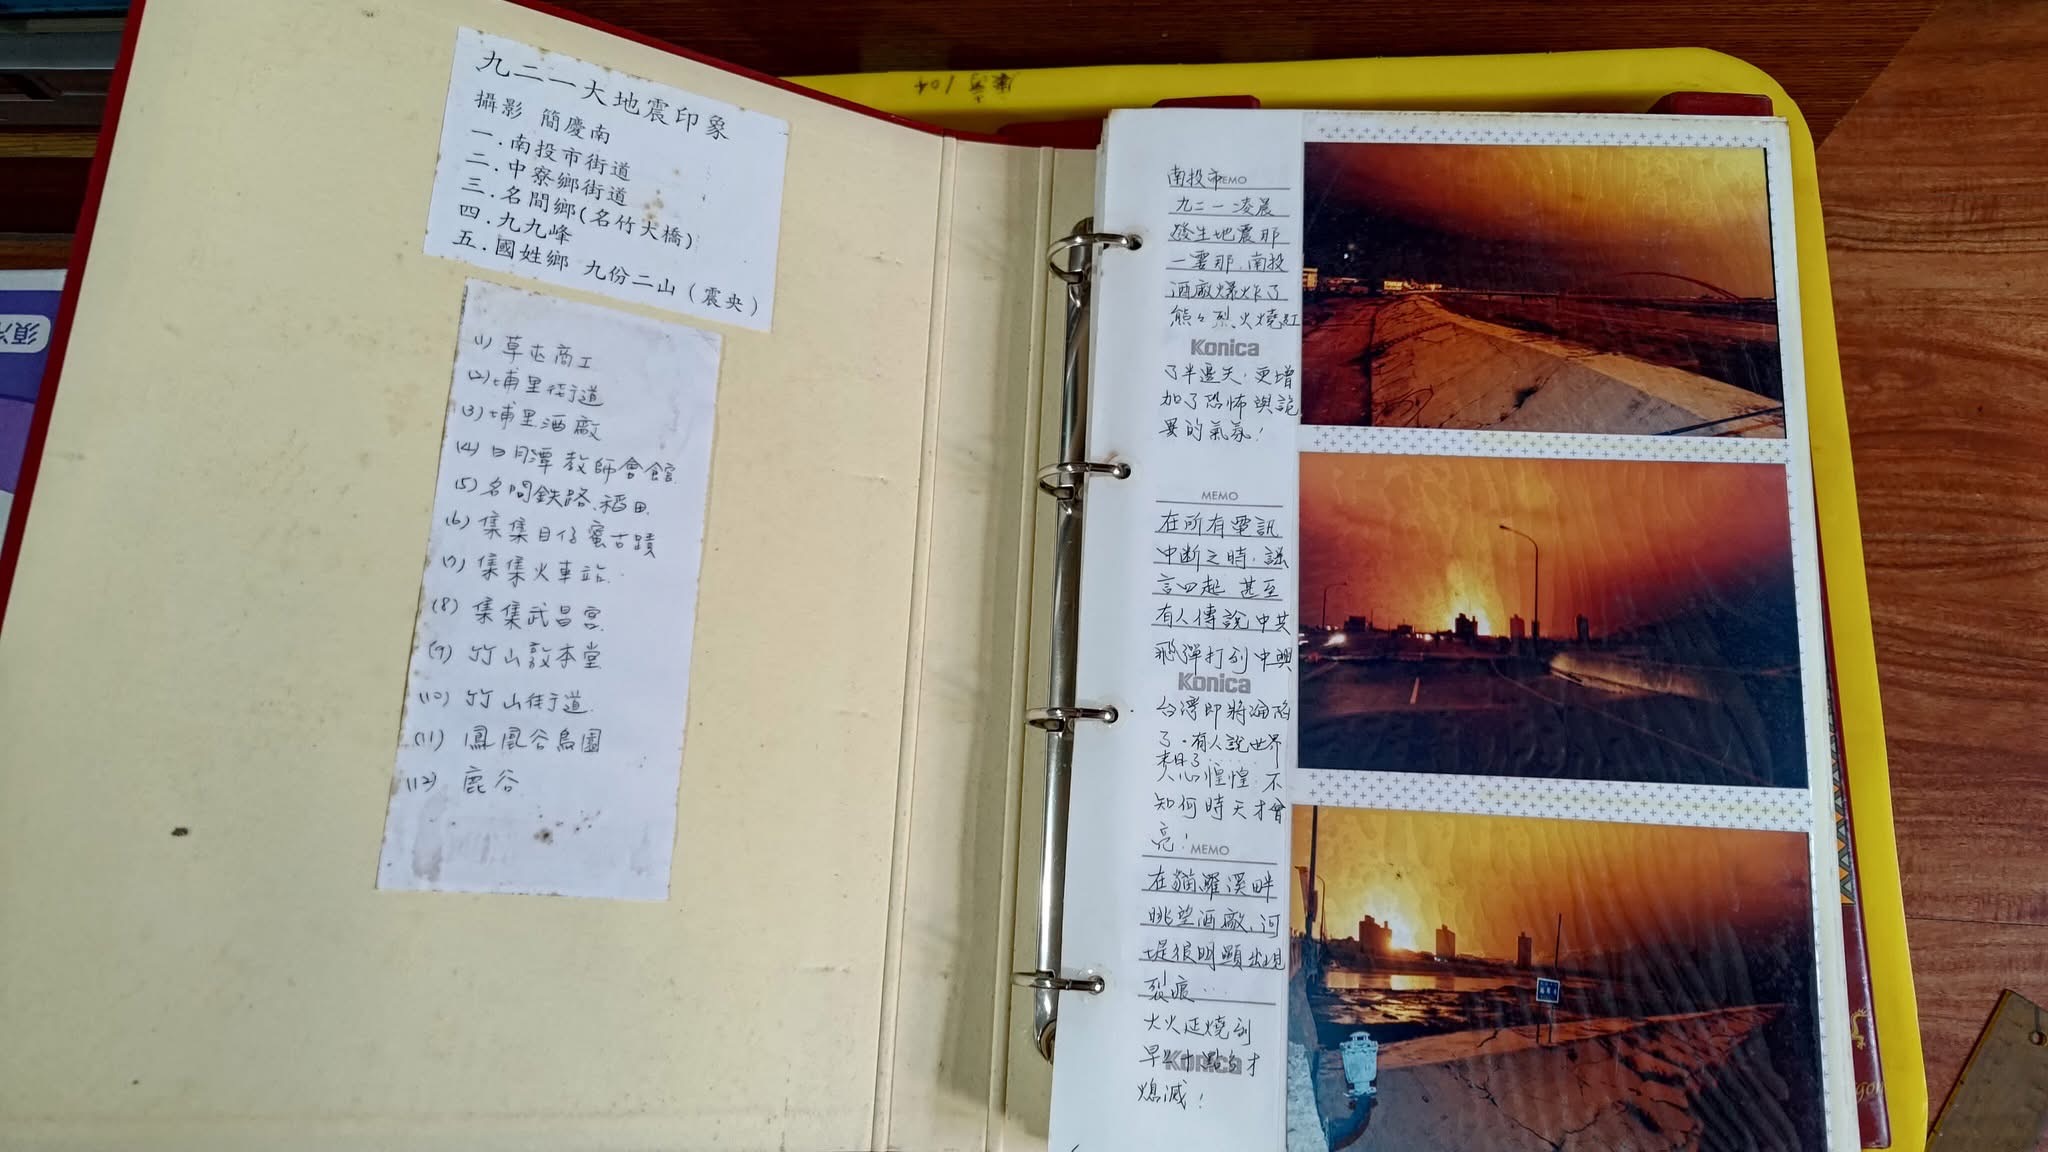 九二一大地震印象
攝影 簡慶南
一.南投市街道
二.中寮鄉街道
三.名間鄉(名竹大橋)
四.九九峰
五.國姓鄉 九份二山(震央)
(1) 草屯商工
(2) 埔里街道
(3) 埔里酒廠
(4) 日月潭教師會館
(5) 名間鉄路.稻田
(6) 集集目仔窰古蹟
(7) 集集火車站
(8) 集集武昌宮
(9) 竹山敦本堂
(10) 竹山街道
(11) 鳳凰谷鳥園
(12) 鹿谷
南投市
MEMO
九二一凌晨
發生地震那
一霎那.南投
酒廠爆炸了
熊々烈火燒紅
Konica
了半邊天.更增
加了恐怖與詭
異的氣氛!
MEMO
在所有電訊
中断之時.謠
言四起 甚至
有人傳說中共
飛彈打到中興
Konica
台灣即將淪陷
了.有人說世界
末日了......
人心惶惶.不
知何時天才會
亮!
MEMO
在貓羅溪畔
眺望酒廠.河
堤很明顯出現
裂痕...
大火延燒到
早上十點多才
Konica
熄滅!
104
須